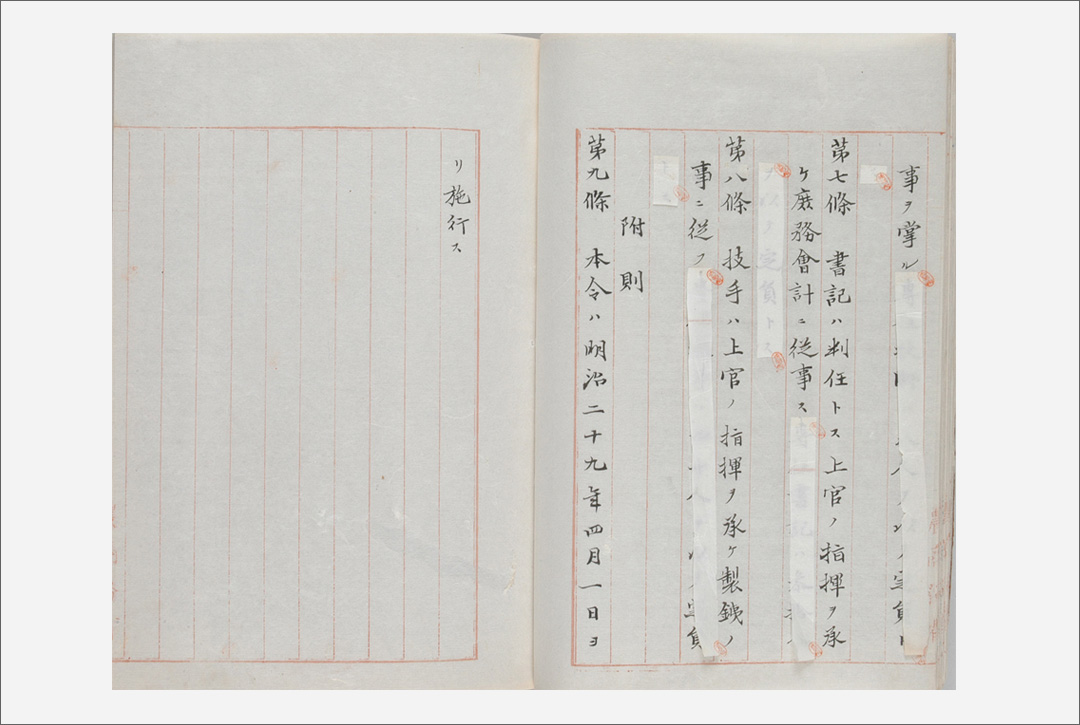 事ヲ掌ル
第七條　書記ハ判任トス上官ノ指揮ヲ承
ケ庶務會計ニ從事ス
第八條　技手ハ上官ノ指揮ヲ承ケ製銕ノ
事ニ從フ
附則
第九條　本令ハ明治二十九年四月一日ヨ
リ施行ス